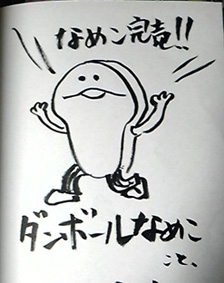 なめこ完売!!
ダンボールなめこ
こと、